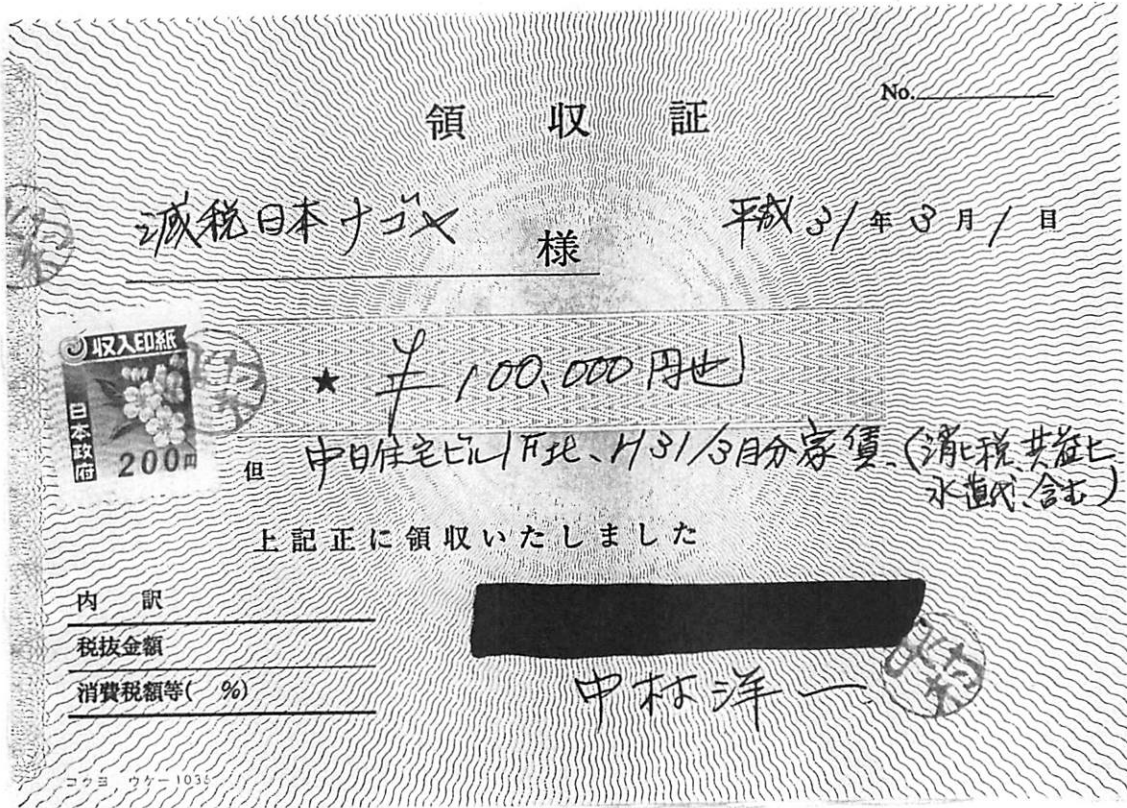 No.
領収証
減税日本ナゴヤ 様
平成31年3月1日
収入印紙
日本政府
200円
★ ¥100,000円也
但 中日住宅ビル1F北、H31/3月分家賃、(消ヒ税、共益ヒ
水道代、含む)
上記正に領収いたしました
内訳
税抜金額
消費税額等( %)
中村洋一
コクヨ ウケ-1035